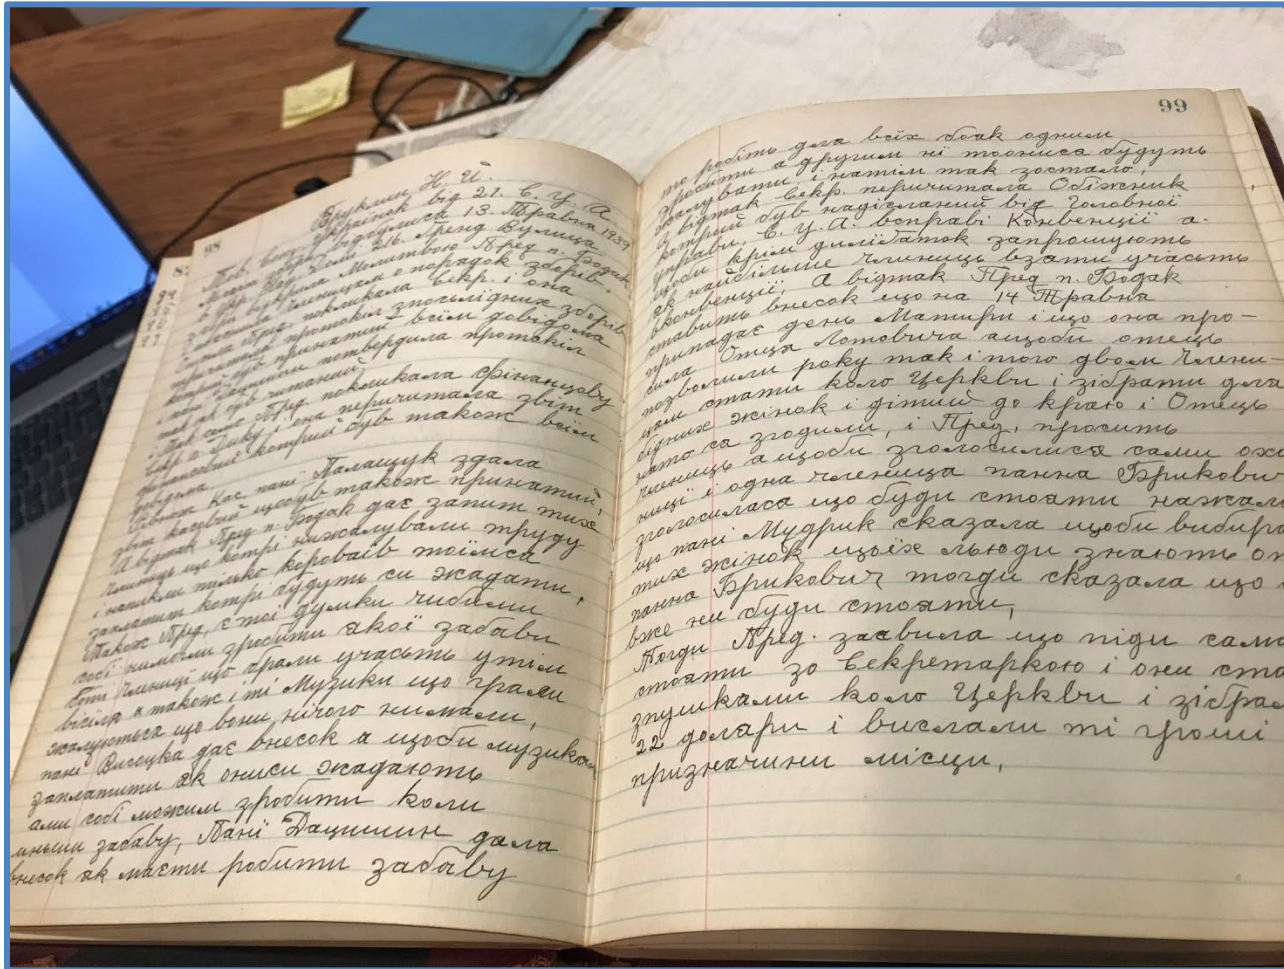 98
Бруклин Н. Й.
Тов. Українок від 21. С. У. А.
13. Травня 1939
216. Гренд Вулица
Молитвою Пред п. Бодак
порядок зборів.
Пред. покликала секр. і она
протокіл зпослідних зборів
котрий був принятий і всім довідома
потвердила протокіл
так як був читаний,
Так само Пред покликала фінанцову
секр п. Дику і она перечитала звіт
фінансовий котрий був також всім
Кас. пані Палащук здала
звіт касовий щобув також принятий,
Авідтак Пред п. Бодак дає запит тих
членниць що котрі нижалували труду
і напикли тилько короваїв тоїмса
заплатит котрі будуть си жадати,
Також Пред, є тої думки чибими
собі нимогли зробити якої забави
боти членниці що брали участь утім
весіля а також і ті Музики що грали
жалуються що вони нічого нимали,
пані Висоцка дає внесок а щоби музика
заплатити як ониси жадають
ами собі можим зробити коли
забаву, Панї Дацишин дала
внесок як маєти робити забаву
99
то робіть для всїх боак одним
зробити а другим нї тоониса будуть
жалувати, і натім так зостало,
Авідтак Секр. перичитала Обіжник
котрий був надісланий від Головної
управи, С. У. А. восправі Конвенції а-
щоби крім делїґаток запрошують
як найбільше Членниць взяти участь
вконвенції, А відтак Пред п. Бодак
ставить внесок що на 14 Травня
припадає день Матири і що она про-
сила Отця Лотовича ащоби отець
позволили року так і того двом Члени-
цям стати коло Церкви і зібрати для
бідних жінок і дітий до краю і Отець
нато са згодили, і Пред, просить
членниць а щоби зголосилися сами охо
ниці і одна членница панна Брикович
зголосиласа що буди стояти нажаль
що пані Мудрик сказала щоби вибира
тих жінок щоїх льюди знають от
панна Брикович тогди сказала що
вже ни буди стояти,
Тогди Пред. заявила що піди сама
стояти зо Секретаркою і они ста
зпушками коло Церкви і зібрал
22 долари і вислали ті гроші
призначини місци,